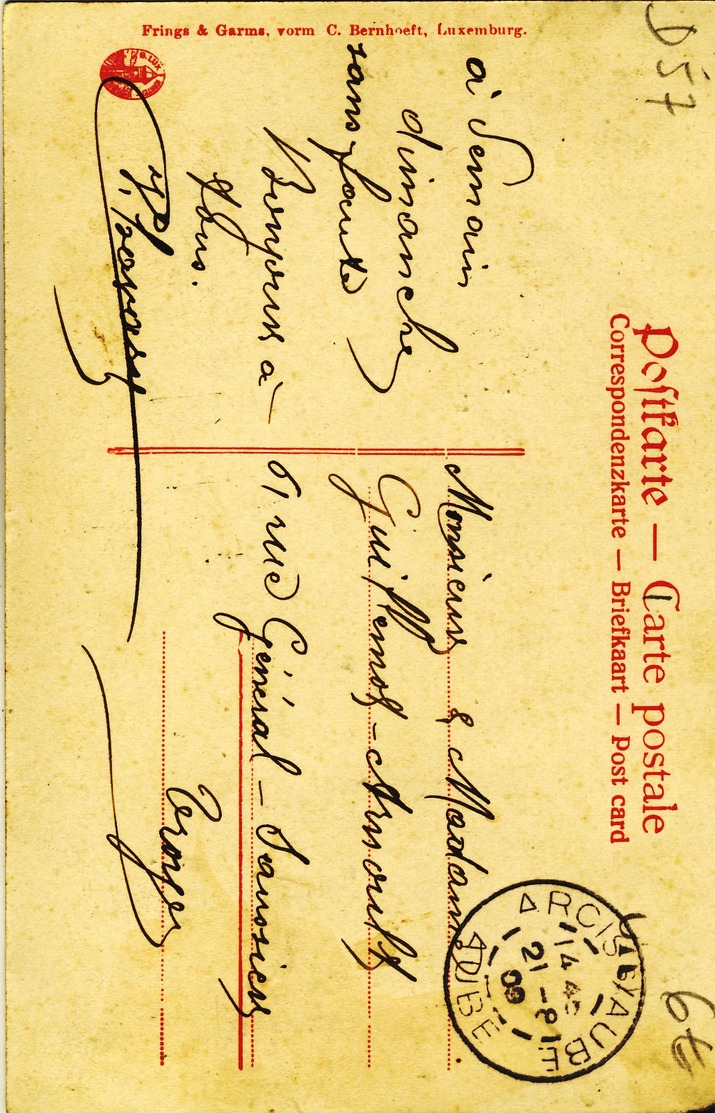 Frings & Garms, vorm C. Bernhoeft, Luxemburg.
D 57
Postkarte — Carte postale
Correspondenzkarte — Briefkaart — Post card
à demain
dimanche
sans faute
Bonjour à
tous.
Monsieur & Madame
Guillemot-Arnould
61 rue Général-Saussier
Troyes
ARCIS S/ AUBE
14 45
21 - 8
09
AUBE
6€